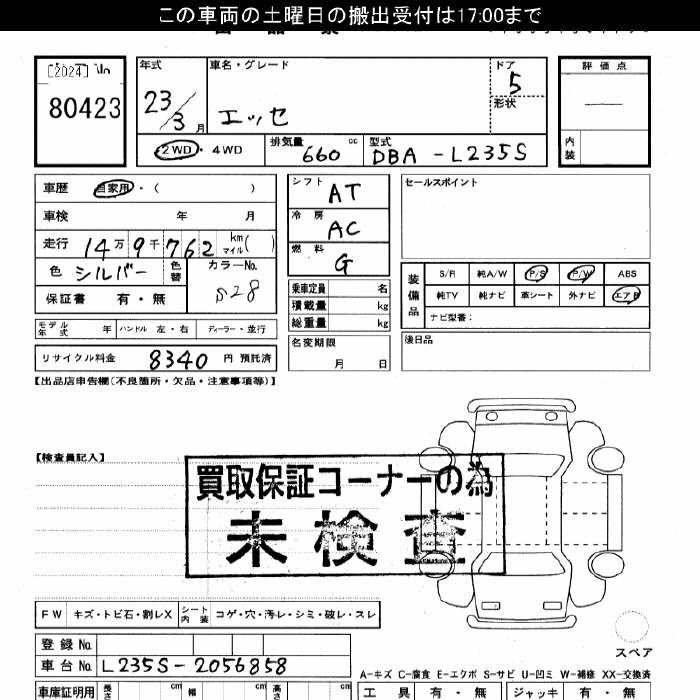 この車両の土曜日の搬出受付は17:00まで
[2024]
80423
年式 車名・グレード ドア 評価点
23/3月 エッセ 5
形状
②WD・4WD 排気量 660 cc 型式 DBA-L235S 内装
車歴 自家用・( )
シフト AT セールスポイント
車検 年 月
冷房 AC
走行 14万9千762 km マイル( )
燃料 G
色 シルバー 色替 カラーNo. S28
装備品 S/R 純A/W P/S P/W ABS
保証書 有・無
乗車定員 名
純TV 純ナビ 革シート 外ナビ エアB
積載量 kg
ナビ型番:
総重量 kg
モデル年式 年 ハンドル 左・右 ディーラー・並行
名変期限 月 日
後日品
リサイクル料金 8340 円 預託済
【出品店申告欄(不良箇所・欠品・注意事項等)】
【検査員記入】
買取保証コーナーの為
未検査
FW キズ・トビ石・割レX シート内装 コゲ・穴・汚レ・シミ・破レ・スレ
スペア
登録No.
車台No. L235S-2056858
A-キズ C-腐食 E-エクボ S-サビ U-凹ミ W-補修 XX-交換済
車庫証明用 長さ cm 幅 cm 高さ cm 工具 有・無 ジャッキ 有・無